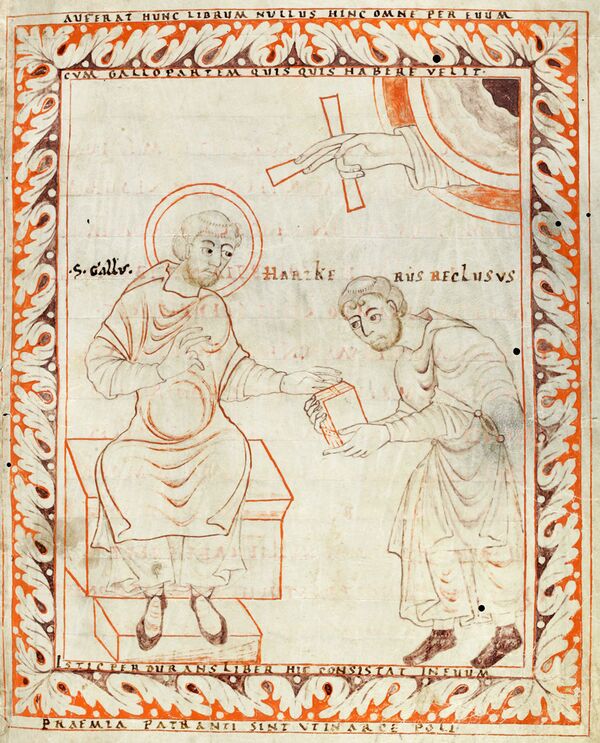 AUFERAT HUNC LIBRUM NULLUS HINC OMNE PER EUUM
CVM GALLO PARTEM QUIS QUIS HABERE VELIT·
·S· Gallus· HARTKE RUS RECLUSVS
ISTIC PERDURANS LIBER HIC CONSISTAT IN EUUM
PRAEMIA PATRANTI SINT VT IN ARCE POLI·